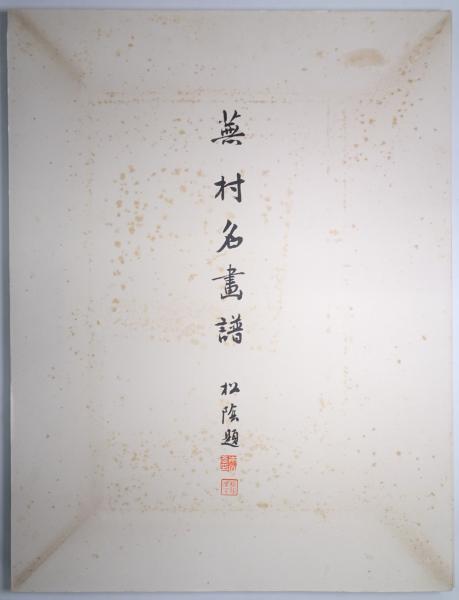 蕪村名畫譜
松陰題